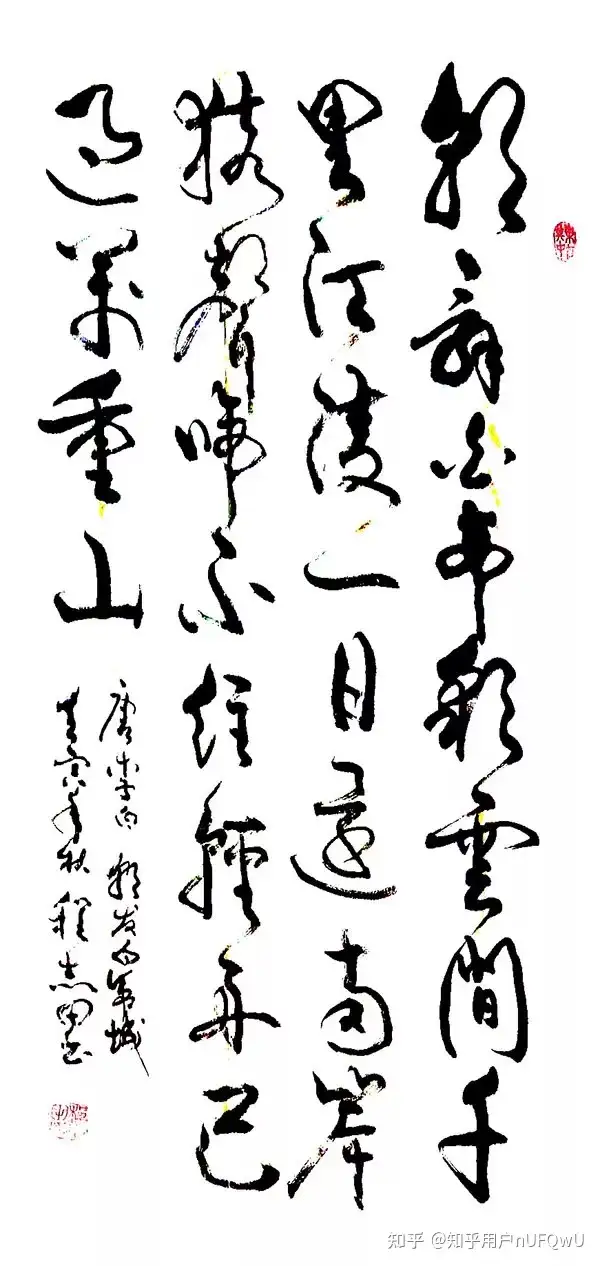 朝辞白帝彩雲間千
里江陵一日還兩岸
猿聲啼不住輕舟已
過萬重山
唐李白 朝发白帝城
壬寅年秋 程志书
知乎 @知乎用户nUFQwU